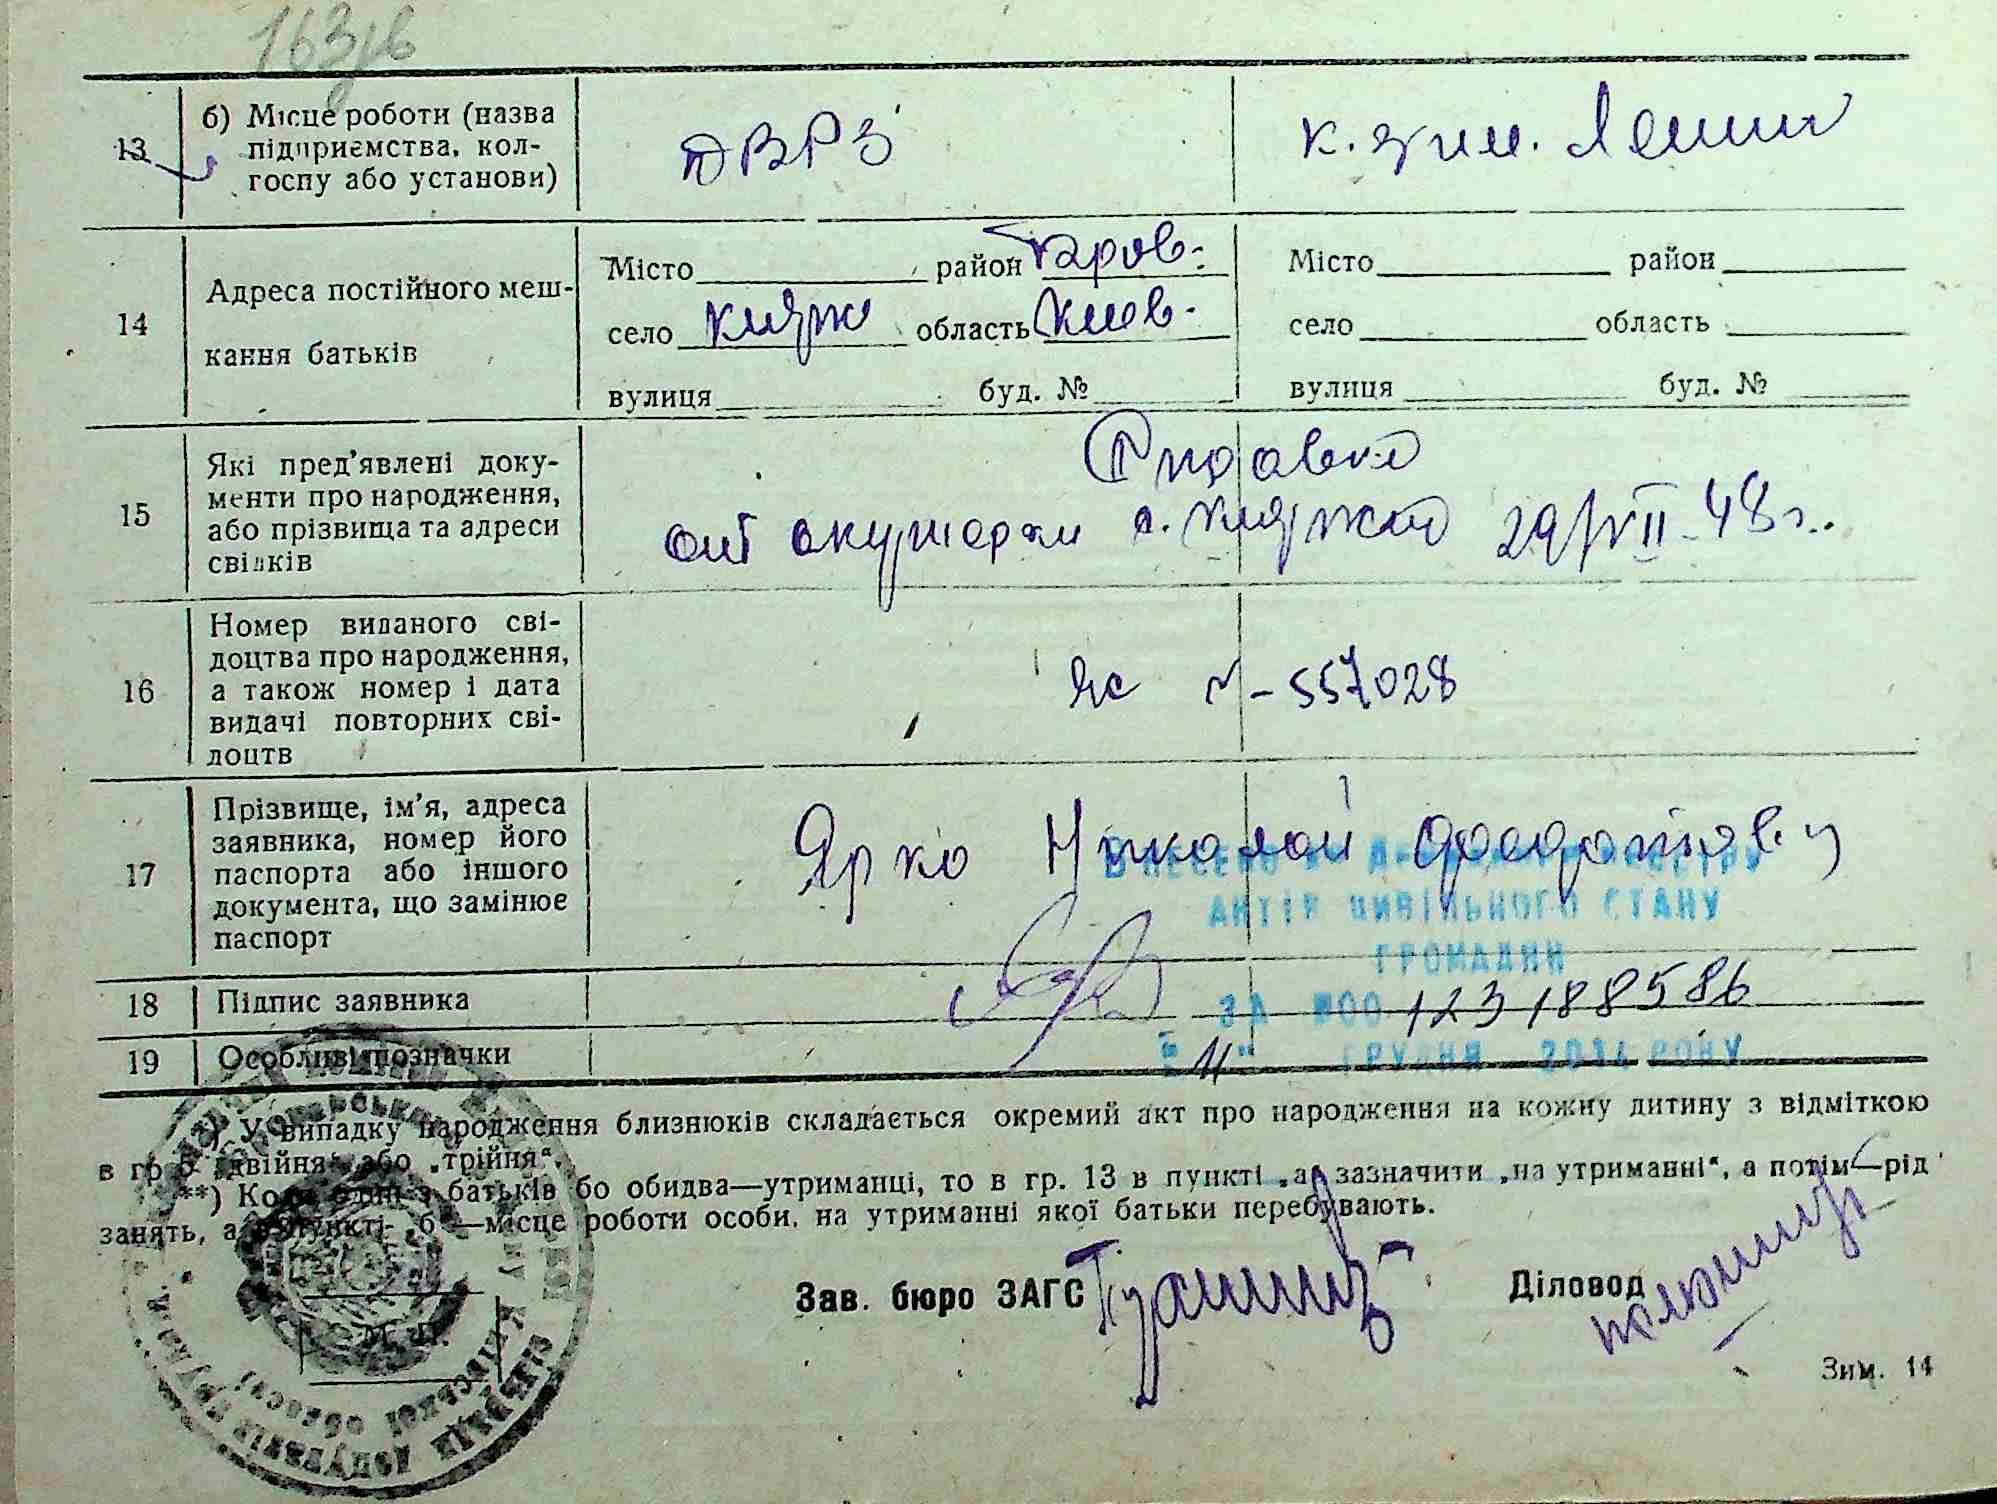 163зв
13 б) Місце роботи (назва
підприємства, кол-
госпу або установи)
ДВРЗ
к. з им. Ленин
14 Адреса постійного меш-
кання батьків
Місто район Бров.
село Княж область Киев.
вулиця буд. №
Місто район
село область
вулиця буд. №
15 Які пред'явлені доку-
менти про народження,
або прізвища та адреси
свідків
Справка
от акушерки с. Княжичи 29/XII-48 г.
16 Номер виданого сві-
доцтва про народження,
а також номер і дата
видачі повторних сві-
доцтв
ЯС № - 557028
17 Прізвище, ім'я, адреса
заявника, номер його
паспорта або іншого
документа, що замінює
паспорт
Ярко Николай
ВНЕСЕНО ДО ДЕРЖАВНОГО РЕЄСТРУ
АКТІВ ЦИВІЛЬНОГО СТАНУ
ГРОМАДЯН
ЗА №00 123188586
"11" ГРУДНЯ 2014 РОКУ
18 Підпис заявника
19 Особливі позначки
*) У випадку народження близнюків складається окремий акт про народження на кожну дитину з відміткою
в гр 5 „двійня“ або „трійня“.
**) Коли один з батьків або обидва—утриманці, то в гр. 13 в пункті „а“ зазначити „на утриманні“, а потім—рід
занять, а в пункті „б“—місце роботи особи, на утриманні якої батьки перебувають.
Зав. бюро ЗАГС
Діловод
М. П.
Київської області
Зим. 14